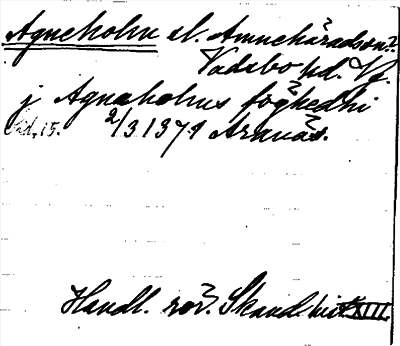 Agneholm sl. Amnehäradssn.
Vadsbo hd. Vg.
j Agnaholms föghedhi
Sid. 15. 2/3 1371 Aranäs.
Handl. rör. Skand. hist. XIII.